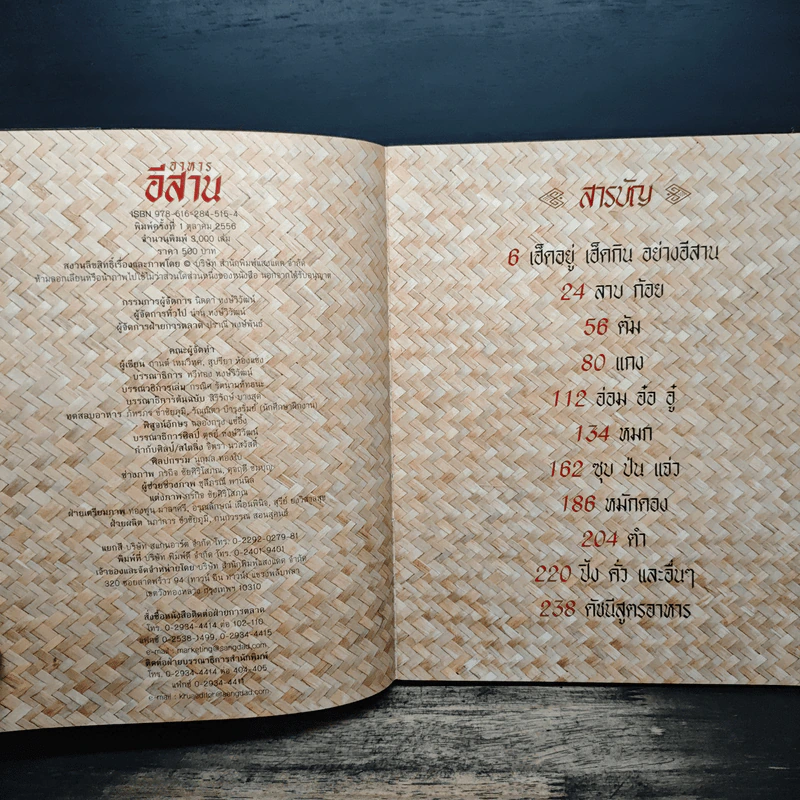 อาหาร
อีสาน
ISBN 978-616-284-515-4
พิมพ์ครั้งที่ 1 ตุลาคม 2556
จำนวนพิมพ์ 3,000 เล่ม
ราคา 500 บาท
สงวนลิขสิทธิ์เรื่องและภาพโดย © บริษัท สำนักพิมพ์แสงแดด จำกัด
ห้ามลอกเลียนหรือนำภาพไปใช้ไม่ว่าส่วนใดส่วนหนึ่งของหนังสือ นอกจากได้รับอนุญาต
กรรมการผู้จัดการ นิดดา หงษ์วิวัฒน์
ผู้จัดการทั่วไป น่าน หงษ์วิวัฒน์
ผู้จัดการฝ่ายการตลาด ปราณี พงษ์พันธ์
คณะผู้จัดทำ
ผู้เขียน กานต์ เหมวิหค, สุปรียา ห้องแซง
บรรณาธิการ ทวีทอง หงษ์วิวัฒน์
บรรณาธิการเล่ม
บรรณาธิการต้นฉบับ สิริรักษ์ บางสุด
ทดสอบอาหาร (นักศึกษาฝึกงาน)
พิสูจน์อักษร
บรรณาธิการศิลป์ ดุลย์ หงษ์วิวัฒน์
กำกับศิลป์/สไตลิ่ง จิตรา นวสวัสดิ์
ศิลปกรรม
ช่างภาพ ภรกิจ ชัยศิริโสภณ,
ผู้ช่วยช่างภาพ
แต่งภาพ ภรกิจ ชัยศิริโสภณ
ฝ่ายเตรียมภาพ
ฝ่ายผลิต
แยกสี บริษัท สแกนอาร์ต จำกัด โทร. 0-2292-0279-81
พิมพ์ที่ บริษัท พิมพ์ดี จำกัด โทร. 0-2401-9401
เจ้าของและจัดจำหน่ายโดย บริษัท สำนักพิมพ์แสงแดด จำกัด
320 ซอยลาดพร้าว 94 (ทาวน์ อิน ทาวน์) แขวงพลับพลา
เขตวังทองหลาง กรุงเทพฯ 10310
สั่งซื้อหนังสือติดต่อฝ่ายการตลาด
โทร. 0-2934-4414 ต่อ 102-110
แฟกซ์ 0-2538-1499, 0-2934-4415
e-mail : marketing@sangdad.com
ติดต่อฝ่ายบรรณาธิการสำนักพิมพ์
โทร. 0-2934-4414 ต่อ 404-405
แฟกซ์ 0-2934-4411
สารบัญ
6 เฮ็ดอยู่ เฮ็ดกิน อย่างอีสาน
24 ลาบ ก้อย
56 ต้ม
80 แกง
112 อ่อม อ๋อ อู๋
134 หมก
162 ซุบ ป่น แจ่ว
186 หมักดอง
204 ตำ
220 ปิ้ง คั่ว และอื่นๆ
238 ดัชนีสูตรอาหาร